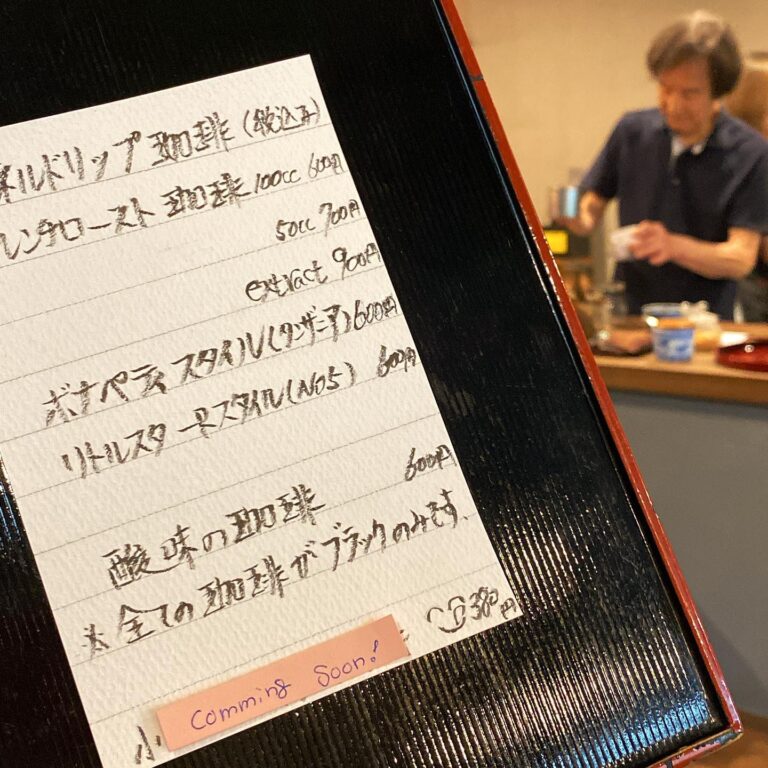 ネルドリップ 珈琲 (税込み)
レンチロースト 珈琲 100cc 600円
50cc 700円
extract 900円
ボナペティ スタイル(タンザニア) 600円
リトルスター スタイル(No5) 600円
酸味の珈琲 600円
※全ての珈琲がブラックのみです、
380円
Comming Soon!
小